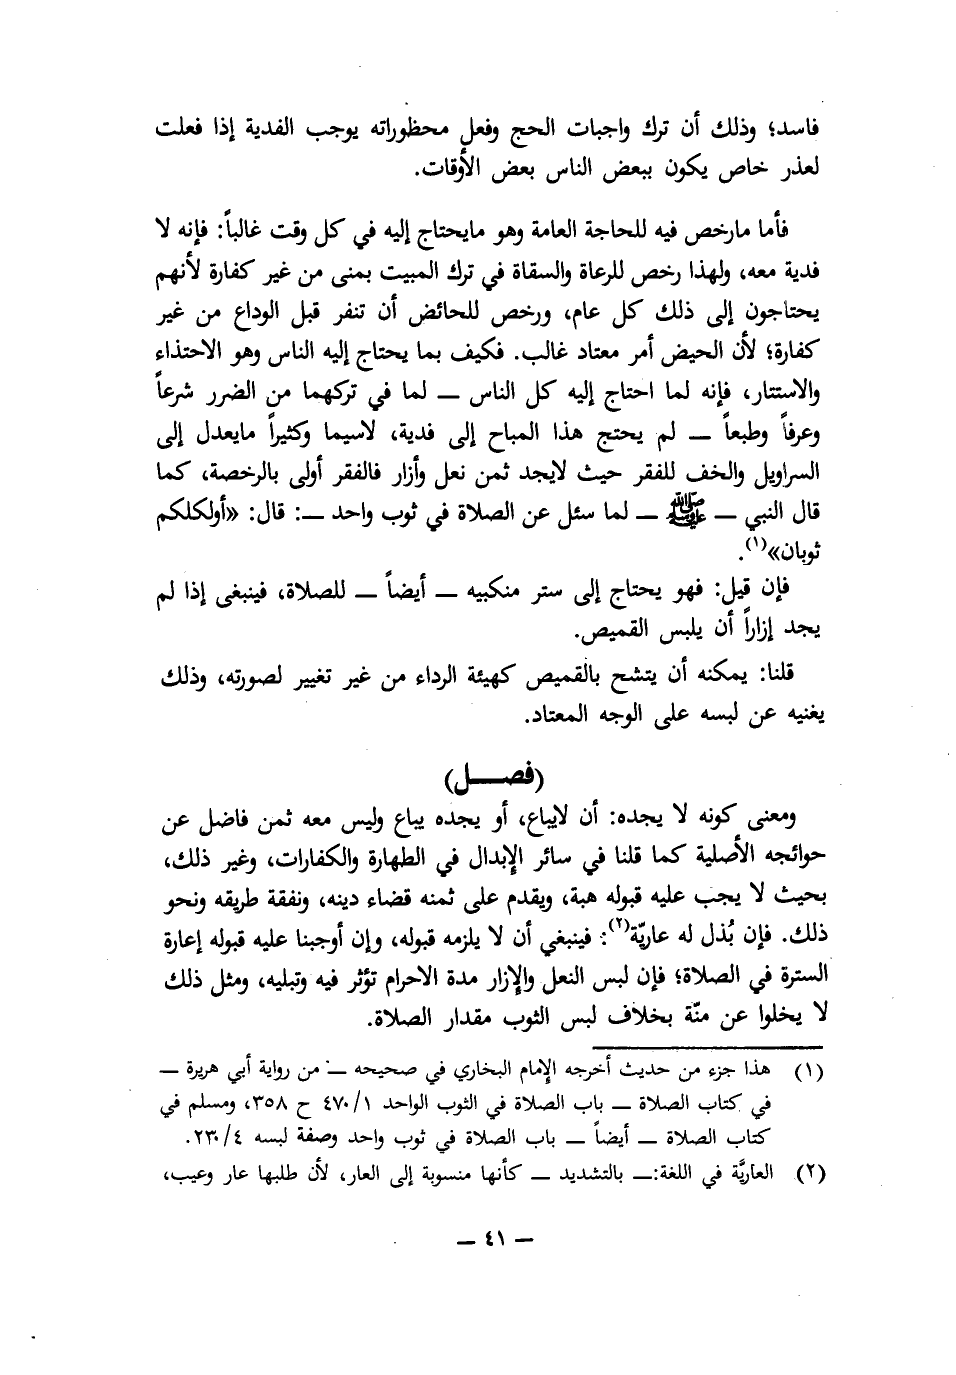 فاسد؛ وذلك أن ترك واجبات الحج وفعل محظوراته يوجب الفدية إذا فعلت
لعذر خاص يكون ببعض الناس بعض الأوقات.
فأما مارخص فيه للحاجة العامة وهو مايحتاج إليه في كل وقت غالباً: فإنه لا
فدية معه، ولهذا رخص للرعاة والسقاة في ترك المبيت بمنى من غير كفارة لأنهم
يحتاجون إلى ذلك كل عام، ورخص للحائض أن تنفر قبل الوداع من غير
كفارة؛ لأن الحيض أمر معتاد غالب. فكيف بما يحتاج إليه الناس وهو الاحتذاء
والاستتار، فإنه لما احتاج إليه كل الناس — لما في تركهما من الضرر شرعاً
وعرفاً وطبعاً — لم يحتج هذا المباح إلى فدية، لاسيما وكثيراً مايعدل إلى
السراويل والخف للفقر حيث لايجد ثمن نعل وأزار فالفقر أولى بالرخصة، كما
قال النبي — ﷺ — لما سئل عن الصلاة في ثوب واحد —: قال: «أولكلكم
ثوبان»(١).
فإن قيل: فهو يحتاج إلى ستر منكبيه — أيضاً — للصلاة، فينبغى إذا لم
يجد إزاراً أن يلبس القميص.
قلنا: يمكنه أن يتشح بالقميص كهيئة الرداء من غير تغيير لصورته، وذلك
يغنيه عن لبسه على الوجه المعتاد.
(فصــل)
ومعنى كونه لا يجده: أن لايباع، أو يجده يباع وليس معه ثمن فاضل عن
حوائجه الأصلية كما قلنا في سائر الإبدال في الطهارة والكفارات، وغير ذلك،
بحيث لا يجب عليه قبوله هبة، ويقدم على ثمنه قضاء دينه، ونفقة طريقه ونحو
ذلك. فإن بُذل له عاريّة(٢): فينبغي أن لا يلزمه قبوله، وإن أوجبنا عليه قبوله إعارة
السترة في الصلاة؛ فإن لبس النعل والإزار مدة الاحرام تؤثر فيه وتبليه، ومثل ذلك
لا يخلوا عن منّة بخلاف لبس الثوب مقدار الصلاة.
(١) هذا جزء من حديث أخرجه الإمام البخاري في صحيحه — من رواية أبي هريرة —
في كتاب الصلاة — باب الصلاة في الثوب الواحد ٤٧٠/١ ح ٣٥٨، ومسلم في
كتاب الصلاة — أيضاً — باب الصلاة في ثوب واحد وصفة لبسه ٢٣٠/٤.
(٢) العاريَّة في اللغة:— بالتشديد — كأنها منسوبة إلى العار، لأن طلبها عار وعيب،
— ٤١ —